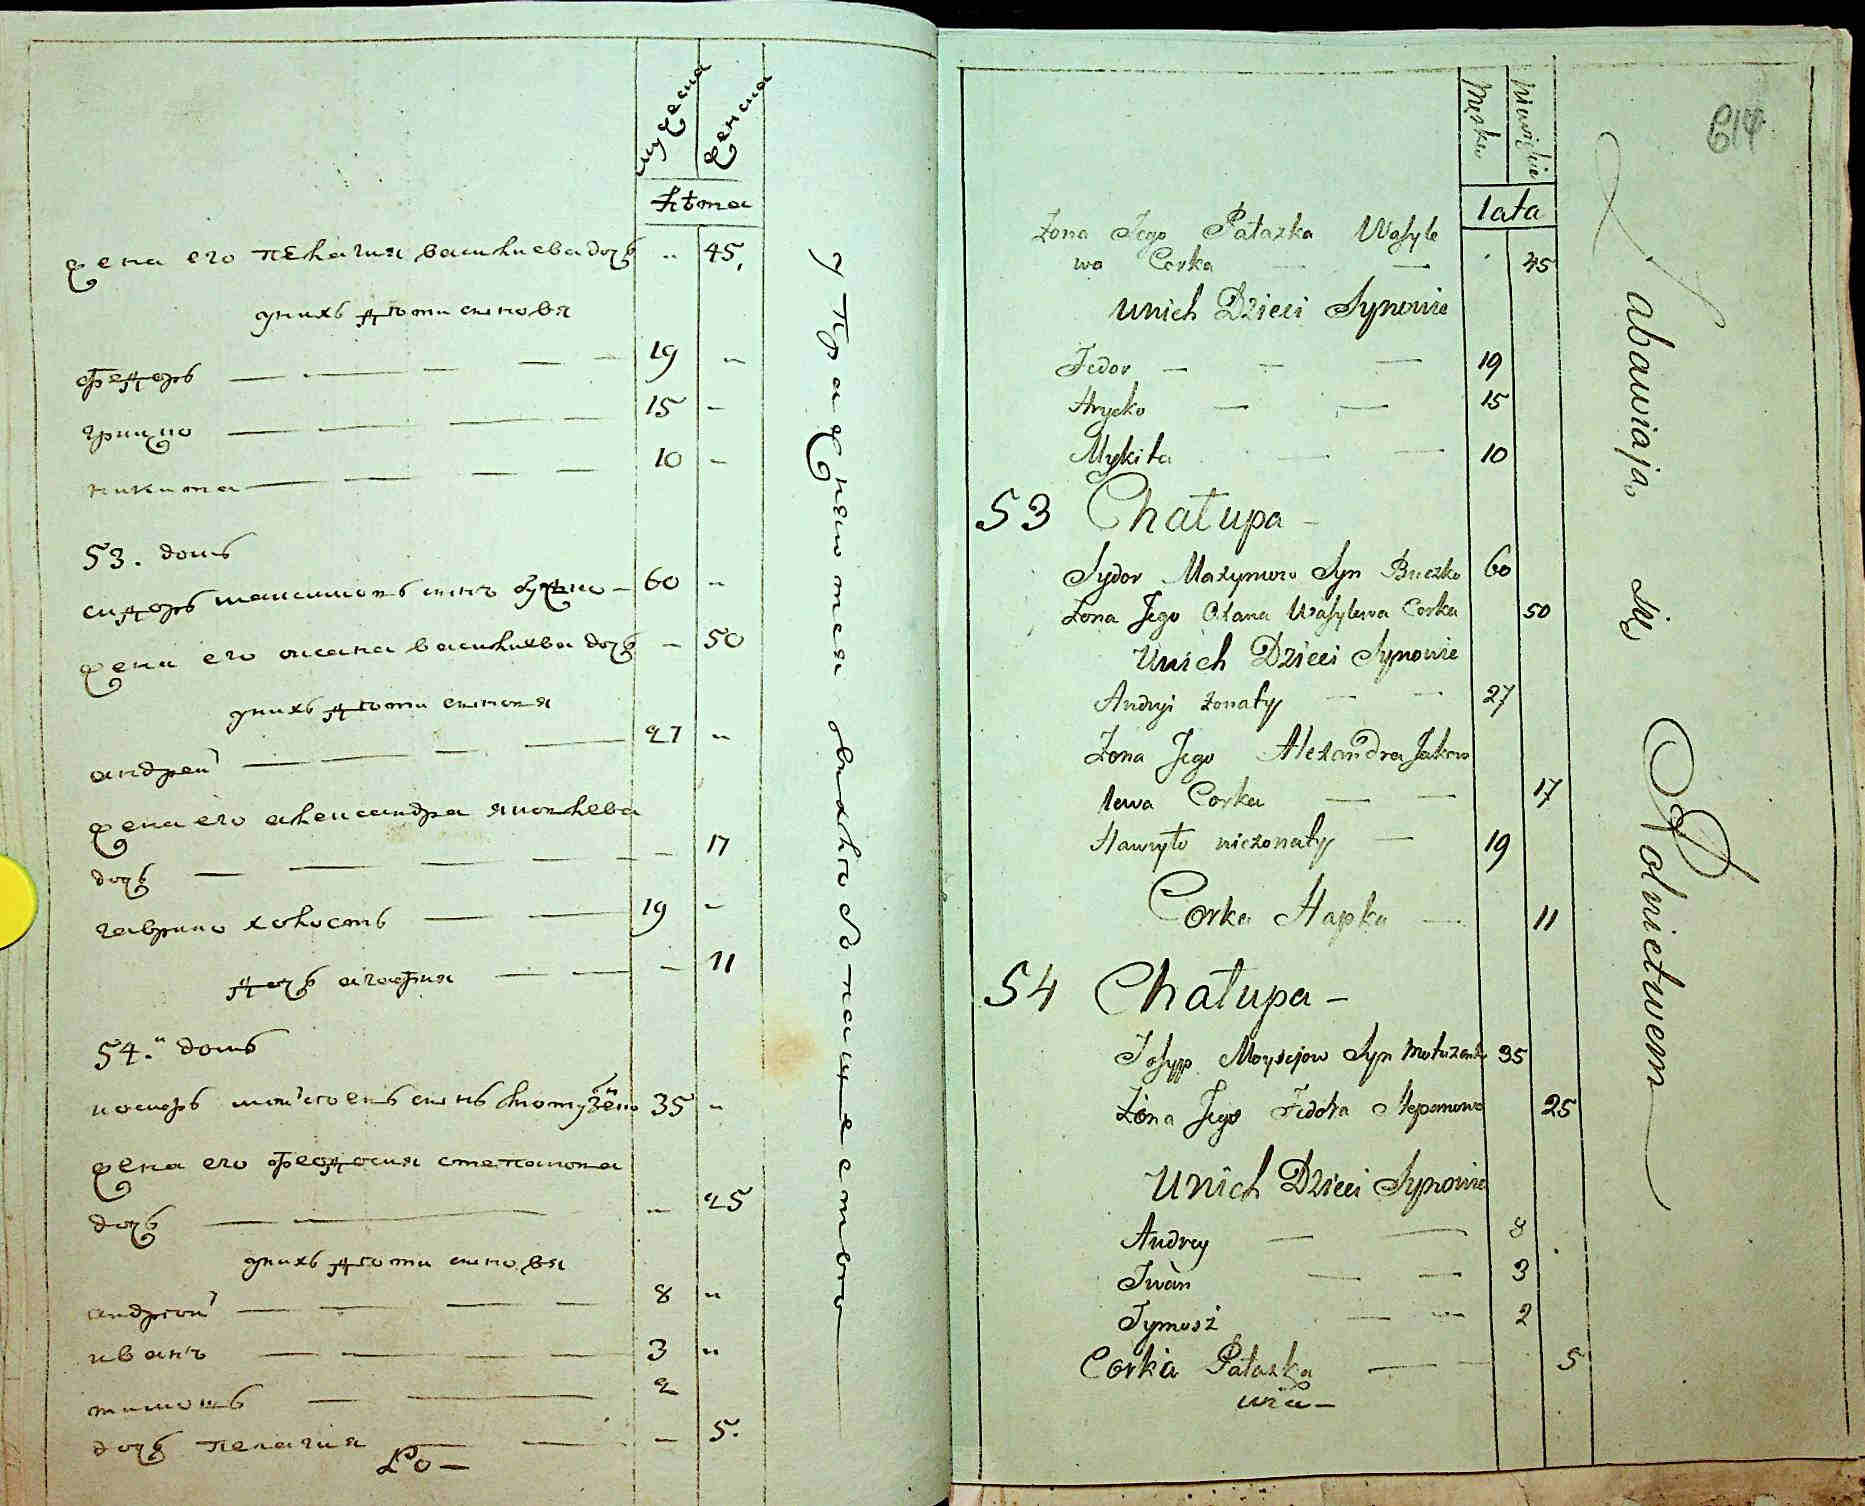 мужеска
женска
лѣта
жена его пелагия васильева дочь " 45,
у нихъ дѣти сыновя
федоръ 19 "
грицко 15 -
никита 10 -
53. домъ
сидоръ максимовъ сынъ бучко 60 "
жена его оксана васильева дочь - 50
у нихъ дѣти сыновя
андрей 27 "
жена его александра яковлева
дочь - 17
гаврило холостъ 19 -
дочь агафия - 11
54." домъ
иосифъ мойсеевъ сынъ 35 "
жена его феодосия степанова
дочь " 25
у нихъ дѣти сыновя
андрей 8 "
иванъ 3 "
тимошъ 2
дочь пелагия - 5.
Ро-
упражняются
пашествомъ
614
Męska
Niewieskie
lata
Zona Jego Pałazka Wasyle
wa Corka 45
Unich Dzieci Synowie
Fedor 19
Hrycko 15
Mykita 10
53 Chałupa -
Sydor Maxymow Syn Buczko 60
Zona Jego Oxana Wasylewa Corka 50
Unich Dzieci Synowie
Andryi żonaty 27
Zona Jego Alexandra Jakow
lewa Corka 17
Hawryło nieżonaty 19
Corka Hapka 11
54 Chałupa -
Josyp Moysejow Syn 35
Zona Jego Fedora Stepanowa 25
Unich Dzieci Synowie
Andrey 8
Iwan 3
Tymosz 2
Corka Pałazka 5
Zabawiają się Rolnictwem